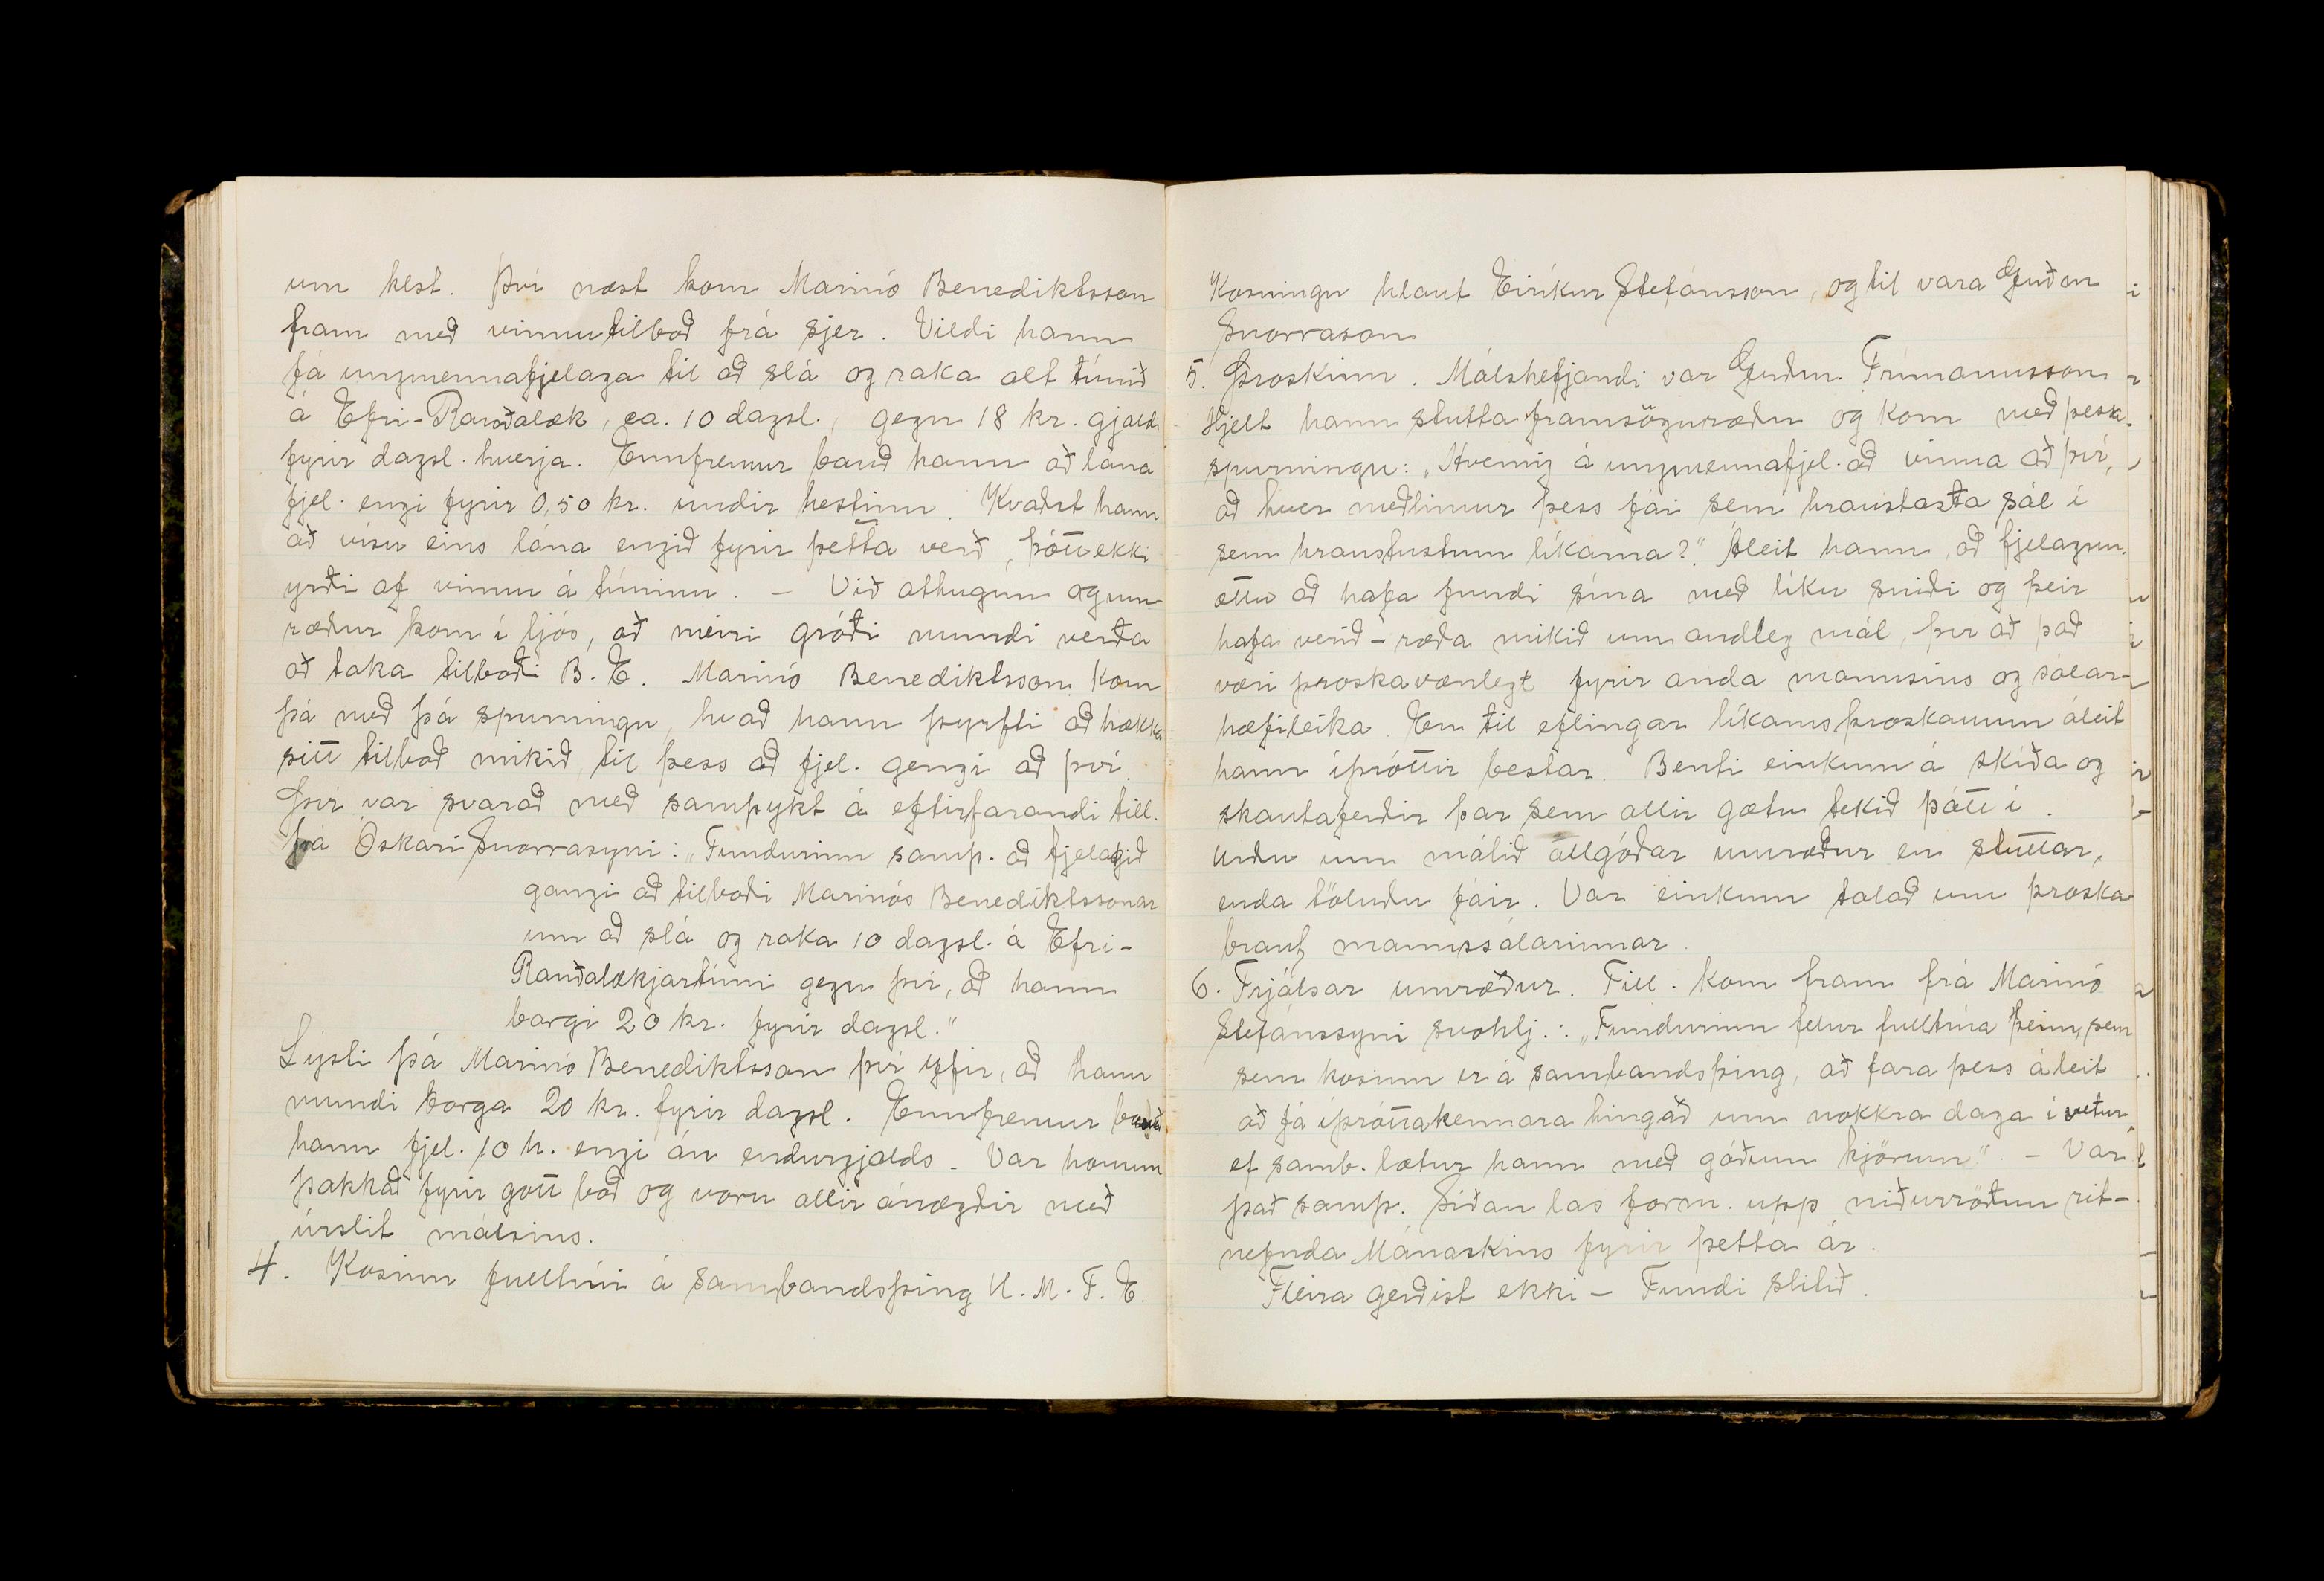 um hest. Því næst kom Marinó Benediktsson
fram með vinnutilboð frá sjer. Vildi hann
fá ungmennafjelaga til að slá og raka alt túnið
á Efri-Rauðalæk, ca. 10 dagsl., gegn 18 kr. gjaldi
fyrir dagsl. hverja. Ennfremur bauð hann að lána
fjel. engi fyrir 0,50 kr. undir hestinn. Kvaðst hann
að vísu eins lána engið fyrir þetta verð, þótt ekki
yrði af vinnu á túninu. - Við athugun og um-
ræður kom í ljós, að meiri gróði mundi verða
að taka tilboði B. E. Marinó Benediktsson kom
þá með þá spurningu, hvað hann þyrfti að hækka
sitt tilboð mikið, til þess að fjel. gengi að því.
Því var svarað með samþykt á eftirfarandi till.
frá Óskari Snorrasyni: „Fundurinn samþ. að fjelagið
gangi að tilboði Marinós Benediktssonar
um að slá og raka 10 dagsl. á Efri-
Rauðalækjartúni gegn því, að hann
borgi 20 kr. fyrir dagsl."
Lýsti þá Marinó Benediktsson því yfir, að hann
mundi borga 20 kr. fyrir dagsl. Ennfremur bauð
hann fjel. 10 h. engi án endurgjalds. Var honum
þakkað fyrir gott boð og voru allir ánægðir með
úrslit málsins.
4. Kosinn fulltrúi á sambandsþing U. M. F. E.
Kosningu hlaut Eiríkur Stefánsson, og til vara Guðm
Snorrason
5. Þroskinn. Málshefjandi var Guðm. Frímannsson
Hjelt hann stutta framsöguræðu og kom með þessa
spurningu: „Hvernig á ungmennafjel. að vinna að því,
að hver meðlimur þess fái sem hraustasta sál í
sem hraustustum líkama?" Áleit hann, að fjelagsm.
ættu að hafa fundi sína með líku sniði og þeir
hafa verið - ræða mikið um andleg mál, því að það
væri þroskavænlegt fyrir anda mannsins og sálar-
hæfileika. En til eflingar líkamsþroskanum áleit
hann íþróttir bestar. Benti einkum á skíða og
skautaferðir þar sem allir gætu tekið þátt í.
Urðu um málið allgóðar umræður en stuttar,
enda töluðu fáir. Var einkum talað um þroska
braut mannssálarinnar.
6. Frjálsar umræður. Till. kom fram frá Marinó
Stefánssyni svohlj.: „Fundurinn felur fulltrúa þeim, sem
sem kosinn er á sambandsþing, að fara þess á leit
að fá íþróttakennara hingað um nokkra daga í vetur,
ef samb. lætur hann með góðum kjörum". - Var
það samþ. Síðan las form. upp niðurröðun rit-
nefnda Mánaskins fyrir þetta ár.
Fleira gerðist ekki - Fundi slitið.